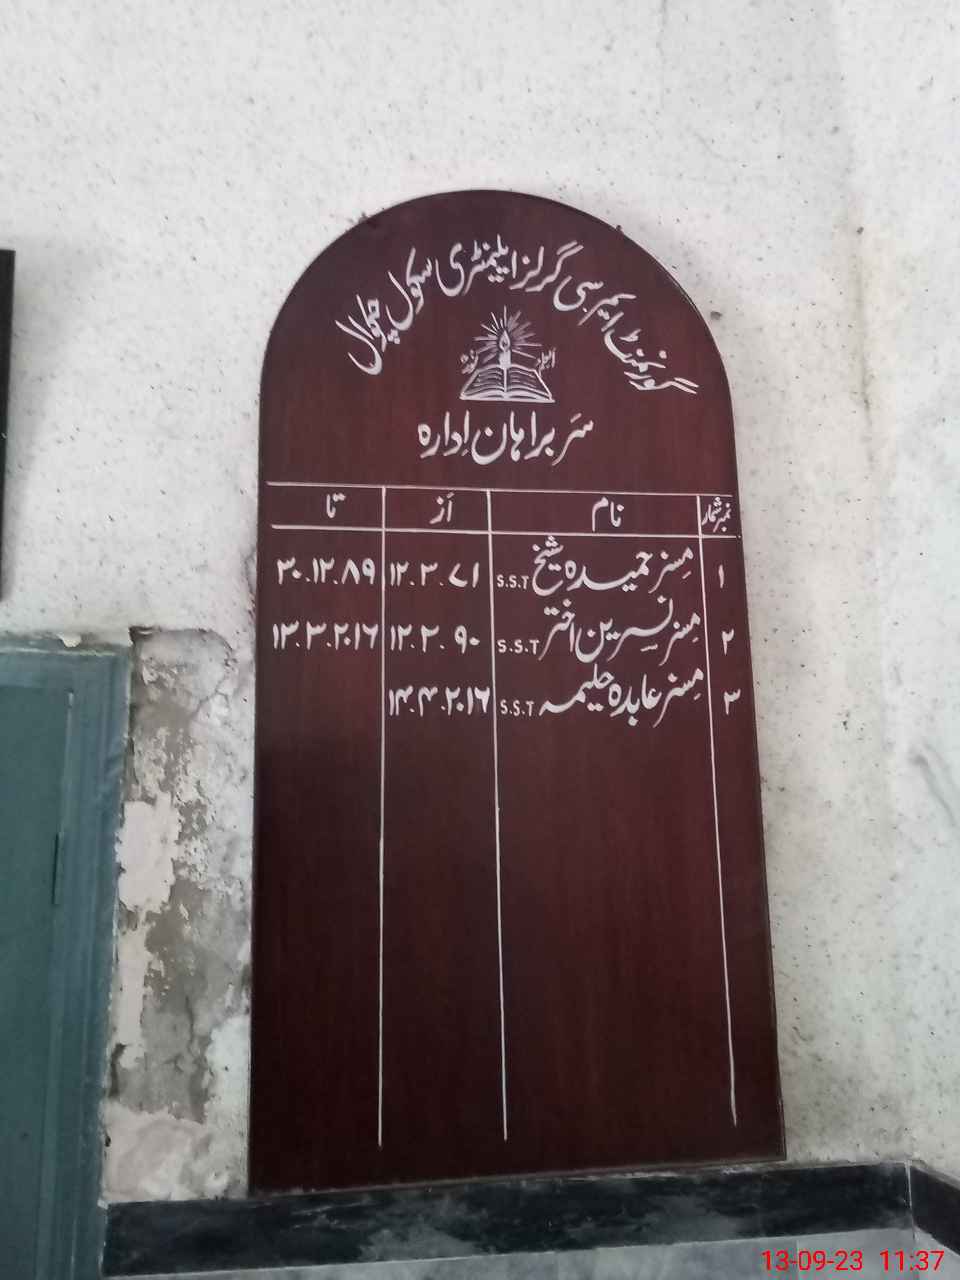 گورنمنٹ ایم سی گرلز ایلیمنٹری سکول چکوال
سَربراہانِ اِدارہ
نمبر شمار نام اَز تا
۱ مسز حمیدہ شیخ S.S.T ۱۲.۳.۷۱ ۳۰.۱۲.۸۹
۲ مسز نسرین اختر S.S.T ۱۲.۲.۹۰ ۱۳.۳.۲۰۱۶
۳ مسز عابدہ حلیمہ S.S.T ۱۴.۴.۲۰۱۶
13-09-23 11:37